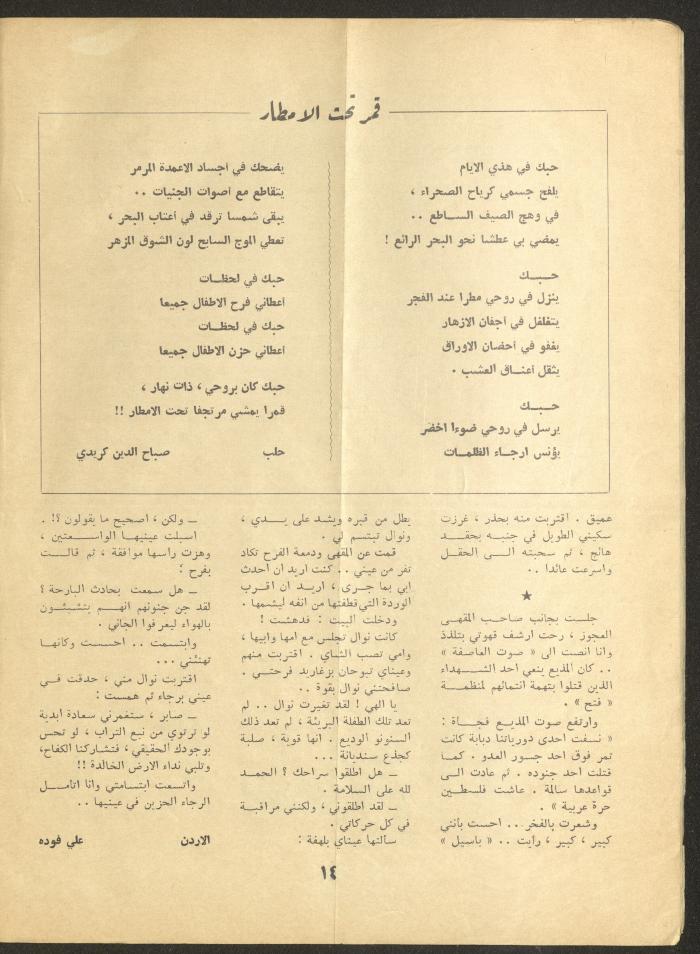 قمر تحت الامطار
حبك في هذي الايام
يلفح جسمي كرياح الصحراء ،
في وهج الصيف الساطع ..
يمضي بي عطشا نحو البحر الرائع !
حبك
ينزل في روحي مطرا عند الفجر
يتغلغل في أجفان الازهار
يغفو في أحضان الاوراق
يثقل أعناق العشب .
حبك
يرسل في روحي ضوءا اخضر
يؤنس ارجاء الظلمات
يضحك في أجساد الاعمدة المرمر
يتقاطع مع أصوات الجنيات ..
يبقى شمسا ترقد في أعتاب البحر ،
تعطي الموج السابح لون الشوق المزهر
حبك في لحظات
أعطاني فرح الاطفال جميعا
حبك في لحظات
أعطاني حزن الاطفال جميعا
حبك كان بروحي ، ذات نهار ،
قمرا يمشي مرتجفا تحت الامطار !!
حلب صباح الدين كريدي
عميق . اقتربت منه بحذر ، غرزت
سكيني الطويل في جنبه بحقد
هائج ، ثم سحبته الى الحقل
واسرعت عائدا ..
★
جلست بجانب صاحب المقهى
العجوز ، رحت ارشف قهوتي بتلذذ
وانا انصت الى « صوت العاصفة »
.. كان المذيع ينعي احد الشهداء
الذين قتلوا بتهمة انتمائهم لمنظمة
« فتح » .
وارتفع صوت المذيع فجأة :
« نسفت احدى دورياتنا دبابة كانت
تمر فوق احد جسور العدو . كما
قتلت احد جنوده . ثم عادت الى
قواعدها سالمة . عاشت فلسطين
حرة عربية » .
وشعرت بالفخر ... احست بأنني
كبير ، كبير ، رأيت .. « باسيل »
يطل من قبره ويشد على يدي ،
ونوال تبتسم لي .
قمت عن المقهى ودمعة الفرح تكاد
تفر من عيني .. كنت اريد ان احدث
ابي بما جرى ، اريد ان اقرب
الوردة التي قطفتها من انفه ليشمها .
ودخلت البيت : فدهشت !
كانت نوال تجلس مع امها وابيها ،
وامي تصب الشاي . اقتربت منهم
وعيناي تبوحان بزغاريد فرحتي .
صافحتني نوال بقوة ..
يا الهي ! لقد تغيرت نوال .. لم
تعد تلك الطفلة البريئة ، لم تعد ذلك
السنونو الوديع . انها قوية ، صلبة
كجذع سنديانة ...
ــ هل اطلقوا سراحك ؟ الحمد
لله على السلامة .
ــ لقد اطلقوني ، ولكنني مراقبة
في كل حركاتي .
سألتها عيناي بلهفة :
ــ ولكن ، اصحيح ما يقولون ؟! .
اسبلت عينيها الواسعتين ،
وهزت راسها موافقة ، ثم قالت
بفرح :
ــ هل سمعت بحادث البارحة ؟
لقد جن جنونهم انهم يتشبثون
بالهواء ليعرفوا الجاني .
وابتسمت .. احسست وكأنها
تهنئني ...
اقتربت نوال مني ، حدقت في
عيني برجاء ثم همست :
ــ صابر ، ستغمرني سعادة ابدية
لو ترتوي من نبع التراب ، لو تحس
بوجودك الحقيقي ، فتشاركنا الكفاح،
وتلبي نداء الارض الخالدة !!
واتسعت ابتسامتي وانا اتأمل
الرجاء الحزين في عينيها ..
الاردن علي فوده
١٤